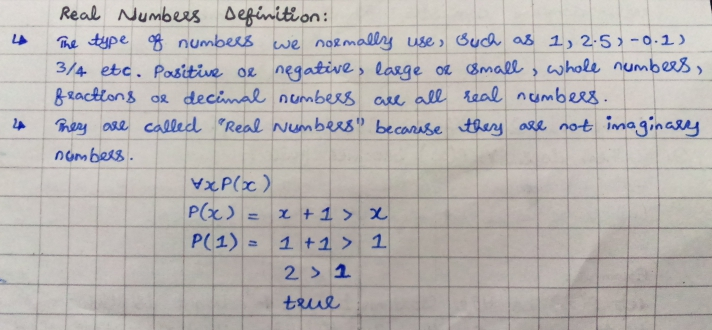 Real Numbers Definition:
↳ The type of numbers we normally use, such as 1, 2.5, -0.1,
3/4 etc. Positive or negative, large or small, whole numbers,
fractions or decimal numbers are all real numbers.
↳ They are called "Real Numbers" because they are not imaginary
numbers.
∀xP(x)
P(x) = x + 1 > x
P(1) = 1 + 1 > 1
2 > 1
true